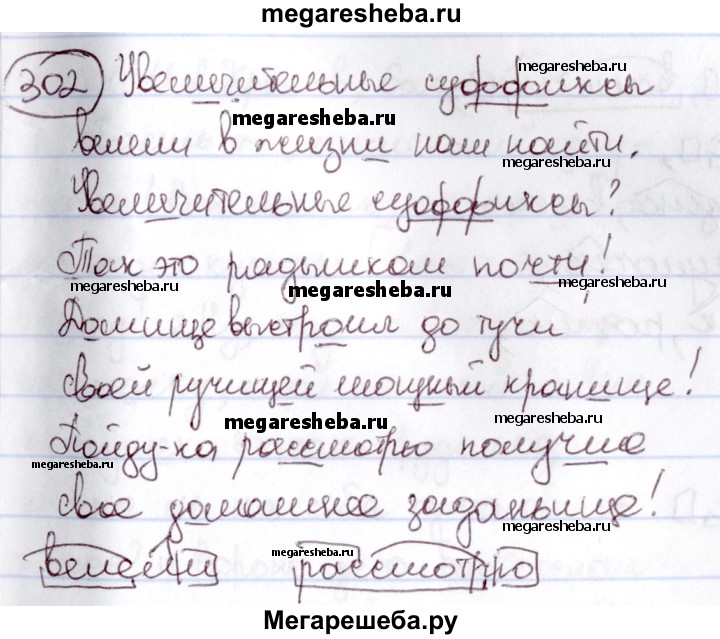 megaresheba.ru
302 Увеличительные суффиксы
megaresheba.ru
megaresheba.ru
велели в жизни нам найти.
megaresheba.ru
Увеличительные суффиксы?
Так это радышком почти!
megaresheba.ru megaresheba.ru megaresheba.ru
Домище выстроил до тучи
своей ручищей мощный кранище!
megaresheba.ru megaresheba.ru
Пойду-ка рассмотрю получше
megaresheba.ru
свое домашнее заданьище!
megaresheba.ru
megaresheba.ru
велели рассмотрю
Мегарешеба.ру